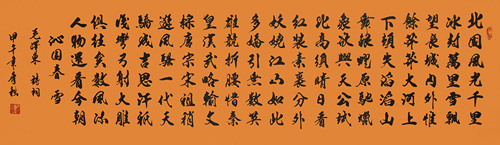 北國風光千里
冰封萬里雪飄
望長城內外惟
餘莽莽大河上
下頓失滔滔山
舞銀蛇原馳蠟
象欲與天公試
比高須晴日看
紅裝素裹分外
妖嬈江山如此
多嬌引無數英
雄競折腰惜秦
皇漢武略輸文
采唐宗宋祖稍
遜風騷一代天
驕成吉思汗祇
識彎弓射大雕
俱往矣數風流
人物還看今朝
沁園春 雪
毛澤東 詩詞
甲午